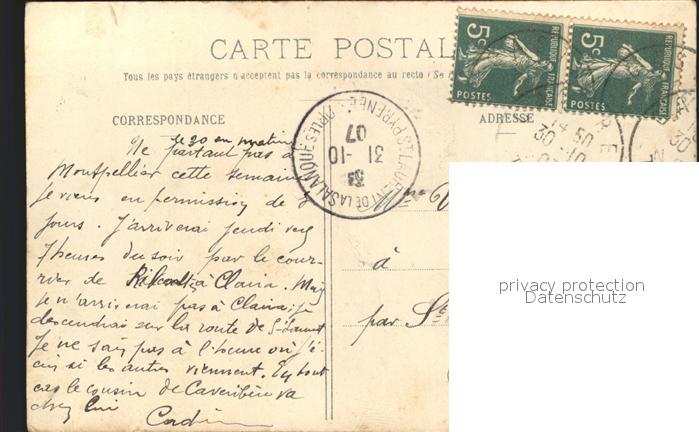 CARTE POSTAL
Tous les pays étrangers n'acceptent pas la correspondance au recto (Se
CORRESPONDANCE
ADRESSE
5c 5c
REPUBLIQUE FRANÇAISE REPUBLIQUE FRANÇAISE
POSTES POSTES
ST LAURENT DE LA SALANQUE
31-10
07
14 50
30-10
le 30 au matin
Ne partant pas à
Montpellier cette semaine
je viens en permission de
jours. J'arriverai jeudi vers
7 heures du soir par le cour-
rier de à Claira. Mais
je n'arriverai pas à Claira, je
descendrai sur la route de St Laurent
Je ne sais pas à l'heure où j'é-
cris si les autres viennent. En tout
cas le cousin de va
chez lui
à
par
privacy protection
Datenschutz